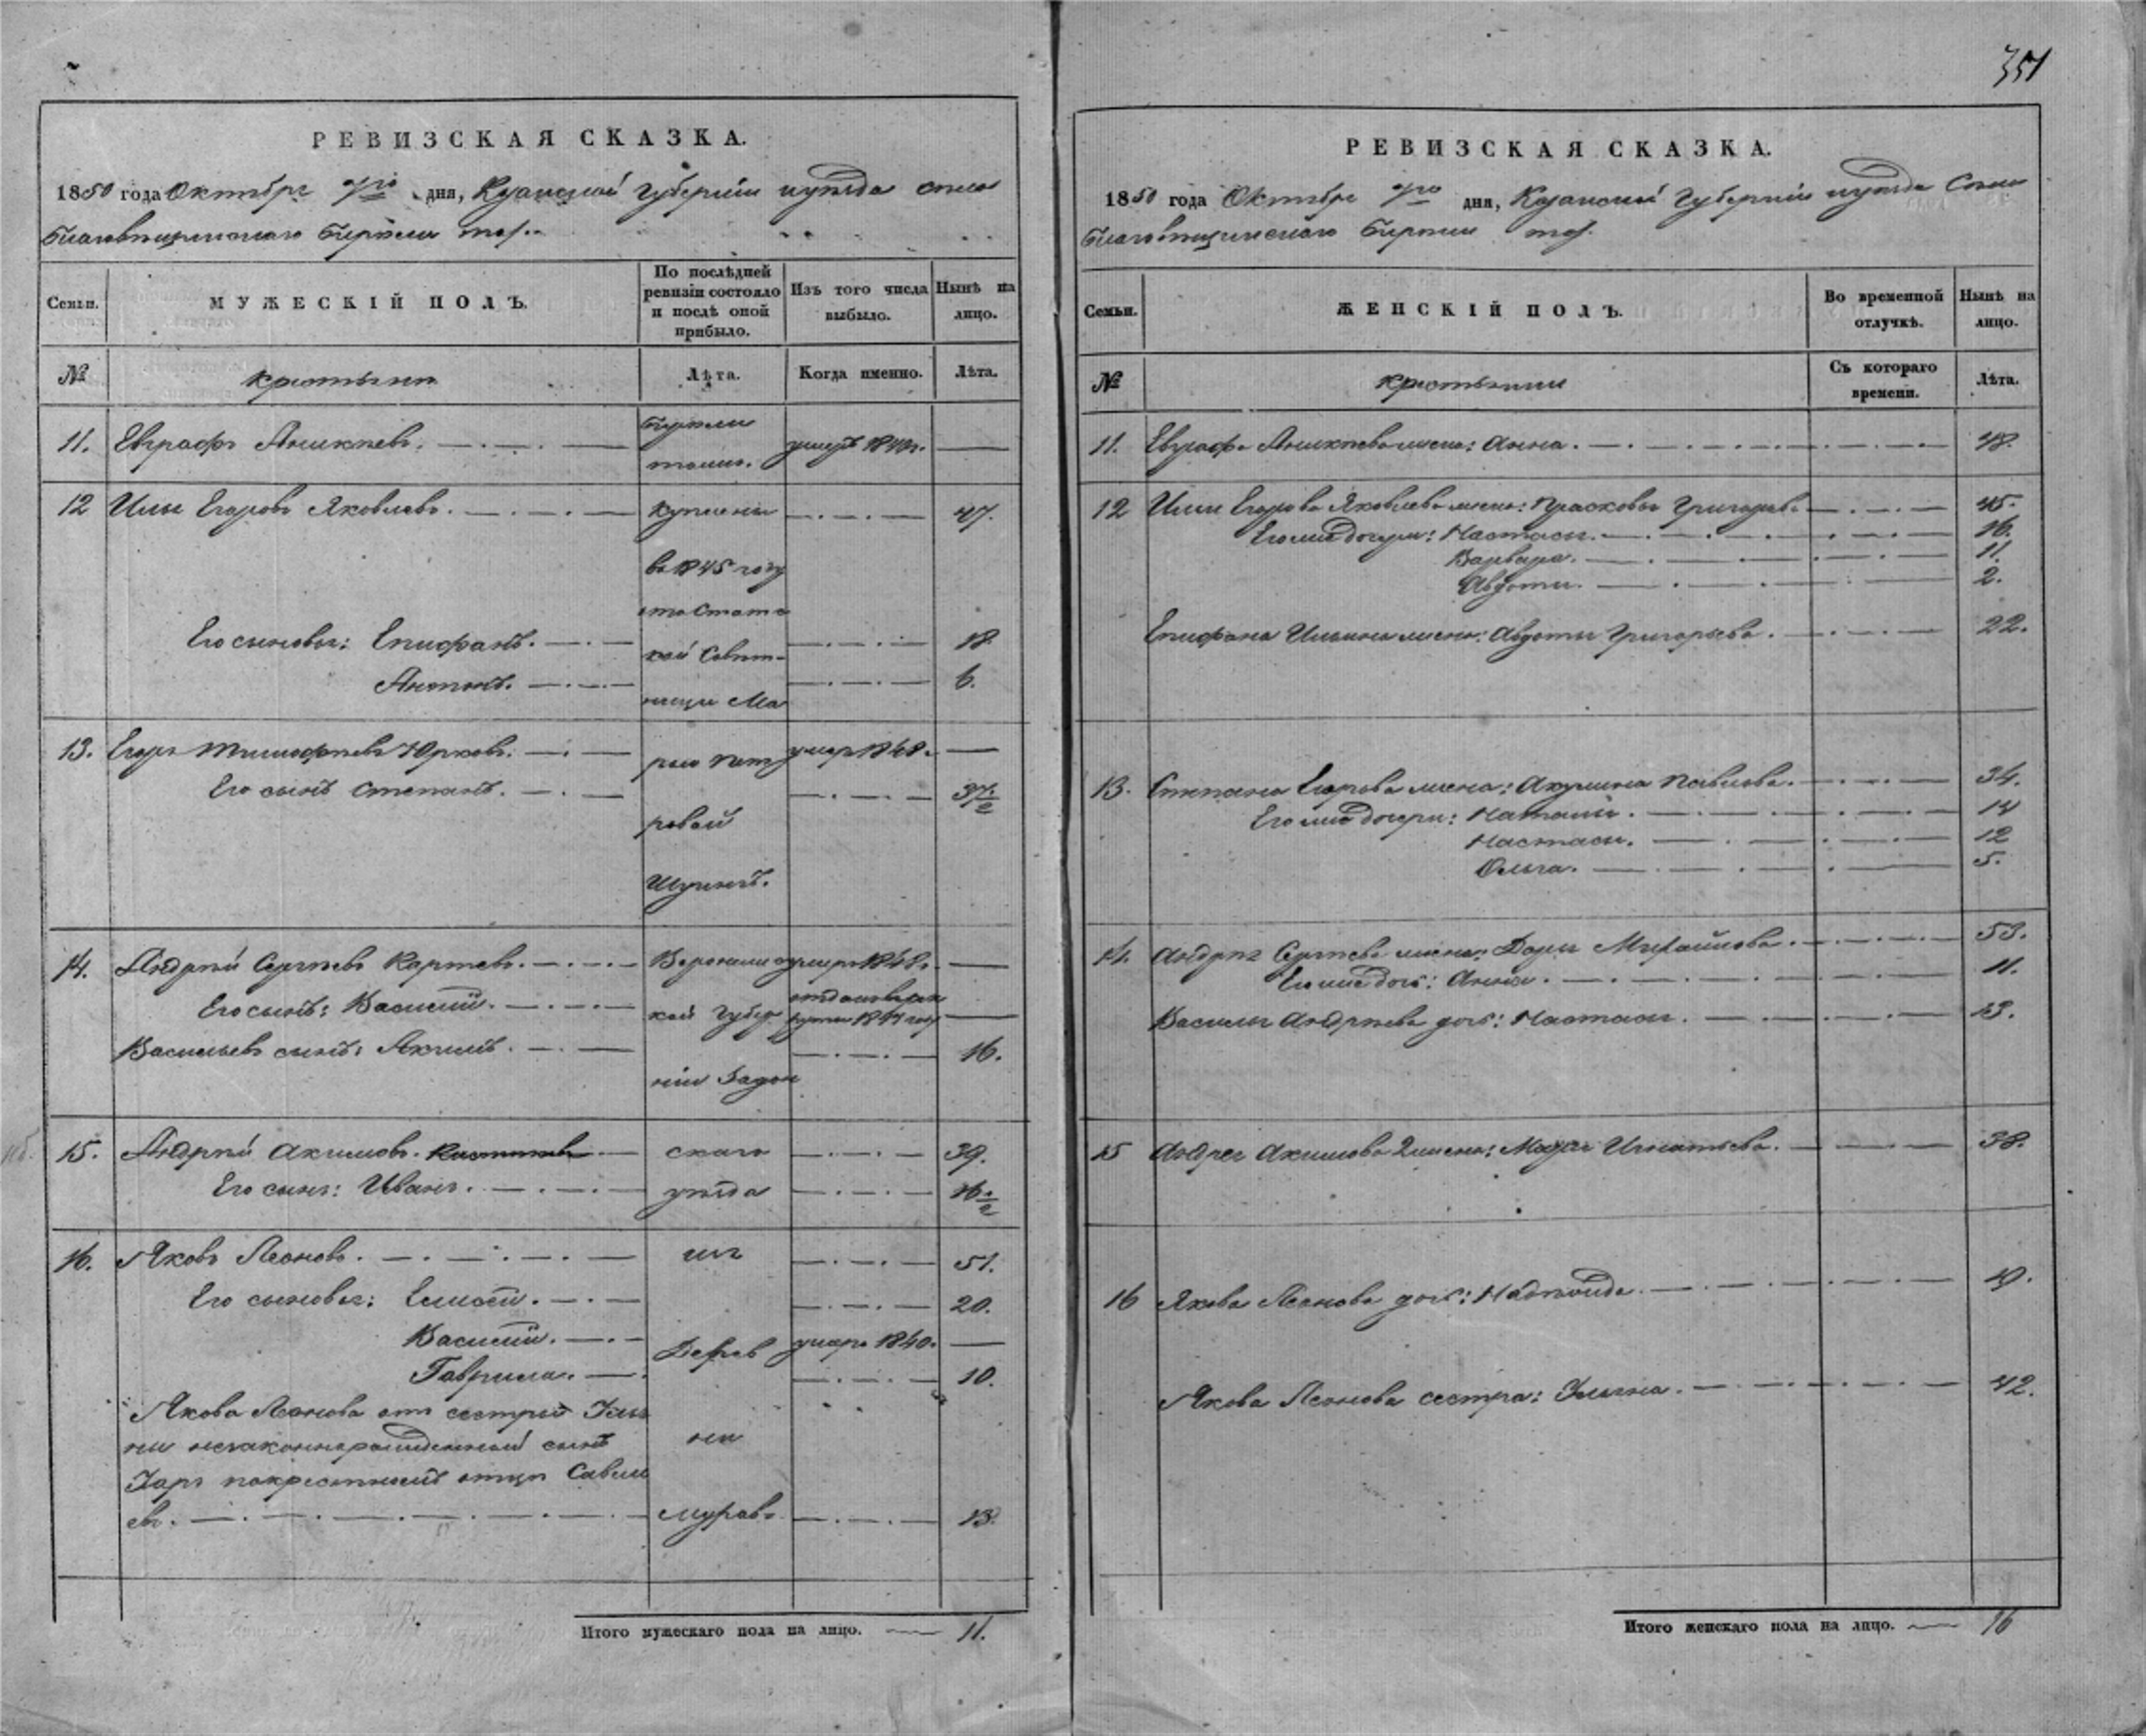 351
РЕВИЗСКАЯ СКАЗКА.
1850 года Октября дня, Казанской Губернии уѣзда села
Благовѣщенскаго Бирюли тож.
Семьи. МУЖЕСКІЙ ПОЛЪ. По послѣдней ревизіи состояло и послѣ оной прибыло. Изъ того числа выбыло. Нынѣ на лицо.
№ крестьяне Лѣта. Когда именно. Лѣта.
11. Евграфъ Аникѣевъ. умеръ
12 Илья Егоровъ Яковлевъ. Куплены 47.
въ 1845 году
отъ Статс
Его сыновья: Епифанъ. кой Совѣт- 18
Антонъ. ницы Ма 6.
13. Егоръ Тимофѣевъ Юрковъ. рьи Пет умеръ 1848.
Его сынъ Степанъ. 37.
ровой
Шупинъ.
14. Андрей Сергѣевъ Карпевъ. Воронежс умеръ 1848.
Его сынъ: Василій. кой Губер отданъ в рек руты 1847 году
Васильевъ сынъ: Акимъ. 16.
ніи Задон
15. Андрей Акимовъ. скаго 39.
Его сынъ: Иванъ. уѣзда 16.
16. Яковъ Леоновъ. 51.
Его сыновья: 20.
Василій. Дерев умеръ 1840.
Гаврила. 10.
Якова Леонова отъ сестры
ны незаконнорожденный сынъ ни
по крестномъ отцѣ Савель
евъ. Мурав. 13.
Итого мужескаго пола на лицо. 11.
РЕВИЗСКАЯ СКАЗКА.
1850 года Октября дня, Казанской Губерніи уѣзда Села
Благовѣщенскаго Бирюли тож.
Семьи. ЖЕНСКІЙ ПОЛЪ. Во временной отлучкѣ. Нынѣ на лицо.
№ крестьяне Съ котораго времени. Лѣта.
11. Евграфа Аникѣева жена: Анна. 48.
12 Ильи Егорова Яковлева жена: Прасковья Григорьева 45.
Его же дочери: Настасья. 16.
Варвара. 11.
Авдотья. 2.
Епифана Ильина жена: Авдотья Григорьева. 22.
13. Степана Егорова жена: Акулина Павлова. 34.
Его же дочери: Наталья. 14
Настасья. 12
Ольга. 5.
14. Андрея Сергѣева жена: Дарья Михайлова. 53.
Его же дочь: Анна. 11.
Василья Андреева дочь: Настасья. 13.
15 Андрея Акимова 2 жена: Игнатьева. 38.
16 Якова Леонова дочь: Надежда.
Якова Леонова сестра: 42.
Итого женскаго пола на лицо. 16